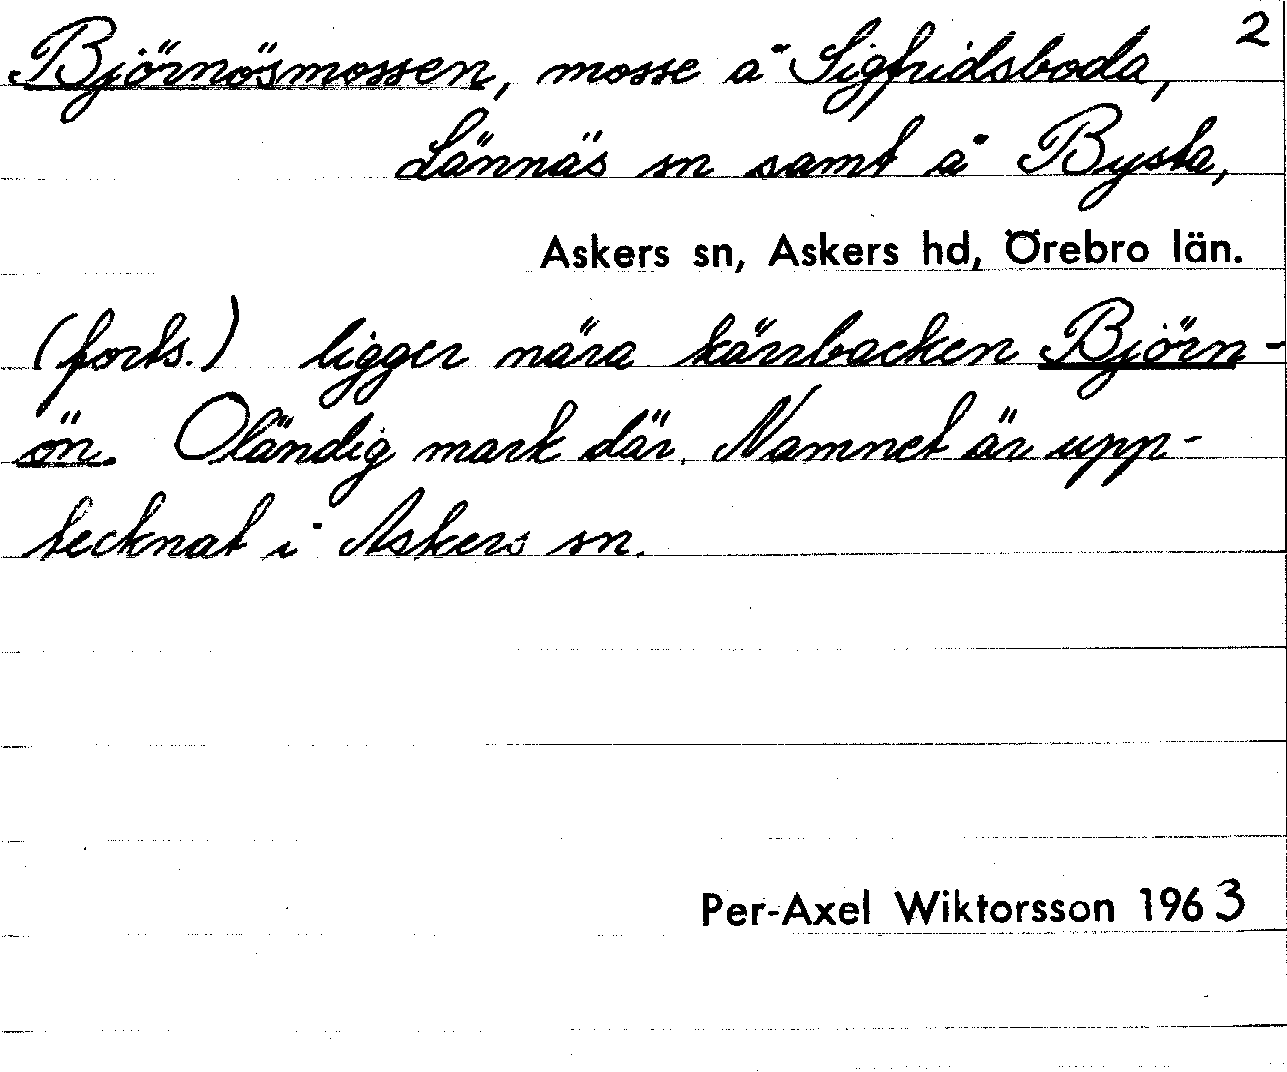 2
Björnösmossen, mosse å Sigfridsboda,
Lännäs sn samt å Bysta,
Askers sn, Askers hd, Örebro län.
(forts.) ligger nära kärrbacken Björn-
ön. Oländig mark där. Namnet är upp-
tecknat i Askers sn.
Per-Axel Wiktorsson 1963